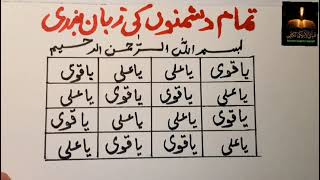 تمام دشمنوں کی زبان بندی
بسم اللہ الرحمن الرحیم
یا قوی یا علی یا علی یا قوی
یا علی یا قوی یا قوی یا علی
یا قوی یا علی یا علی یا قوی
یا علی یا قوی یا قوی یا علی